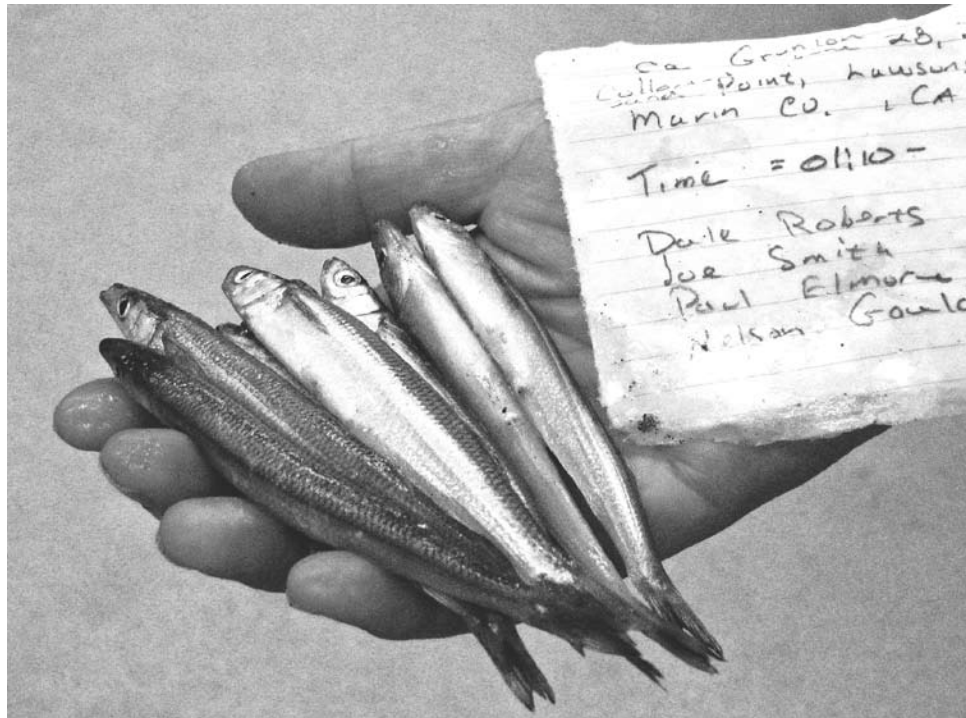 Ca Grunion 28,
Point, Lawsons
Marin Co., CA
Time = 01:10-
Dale Roberts
Joe Smith
Paul Elmore
Nelson Gould